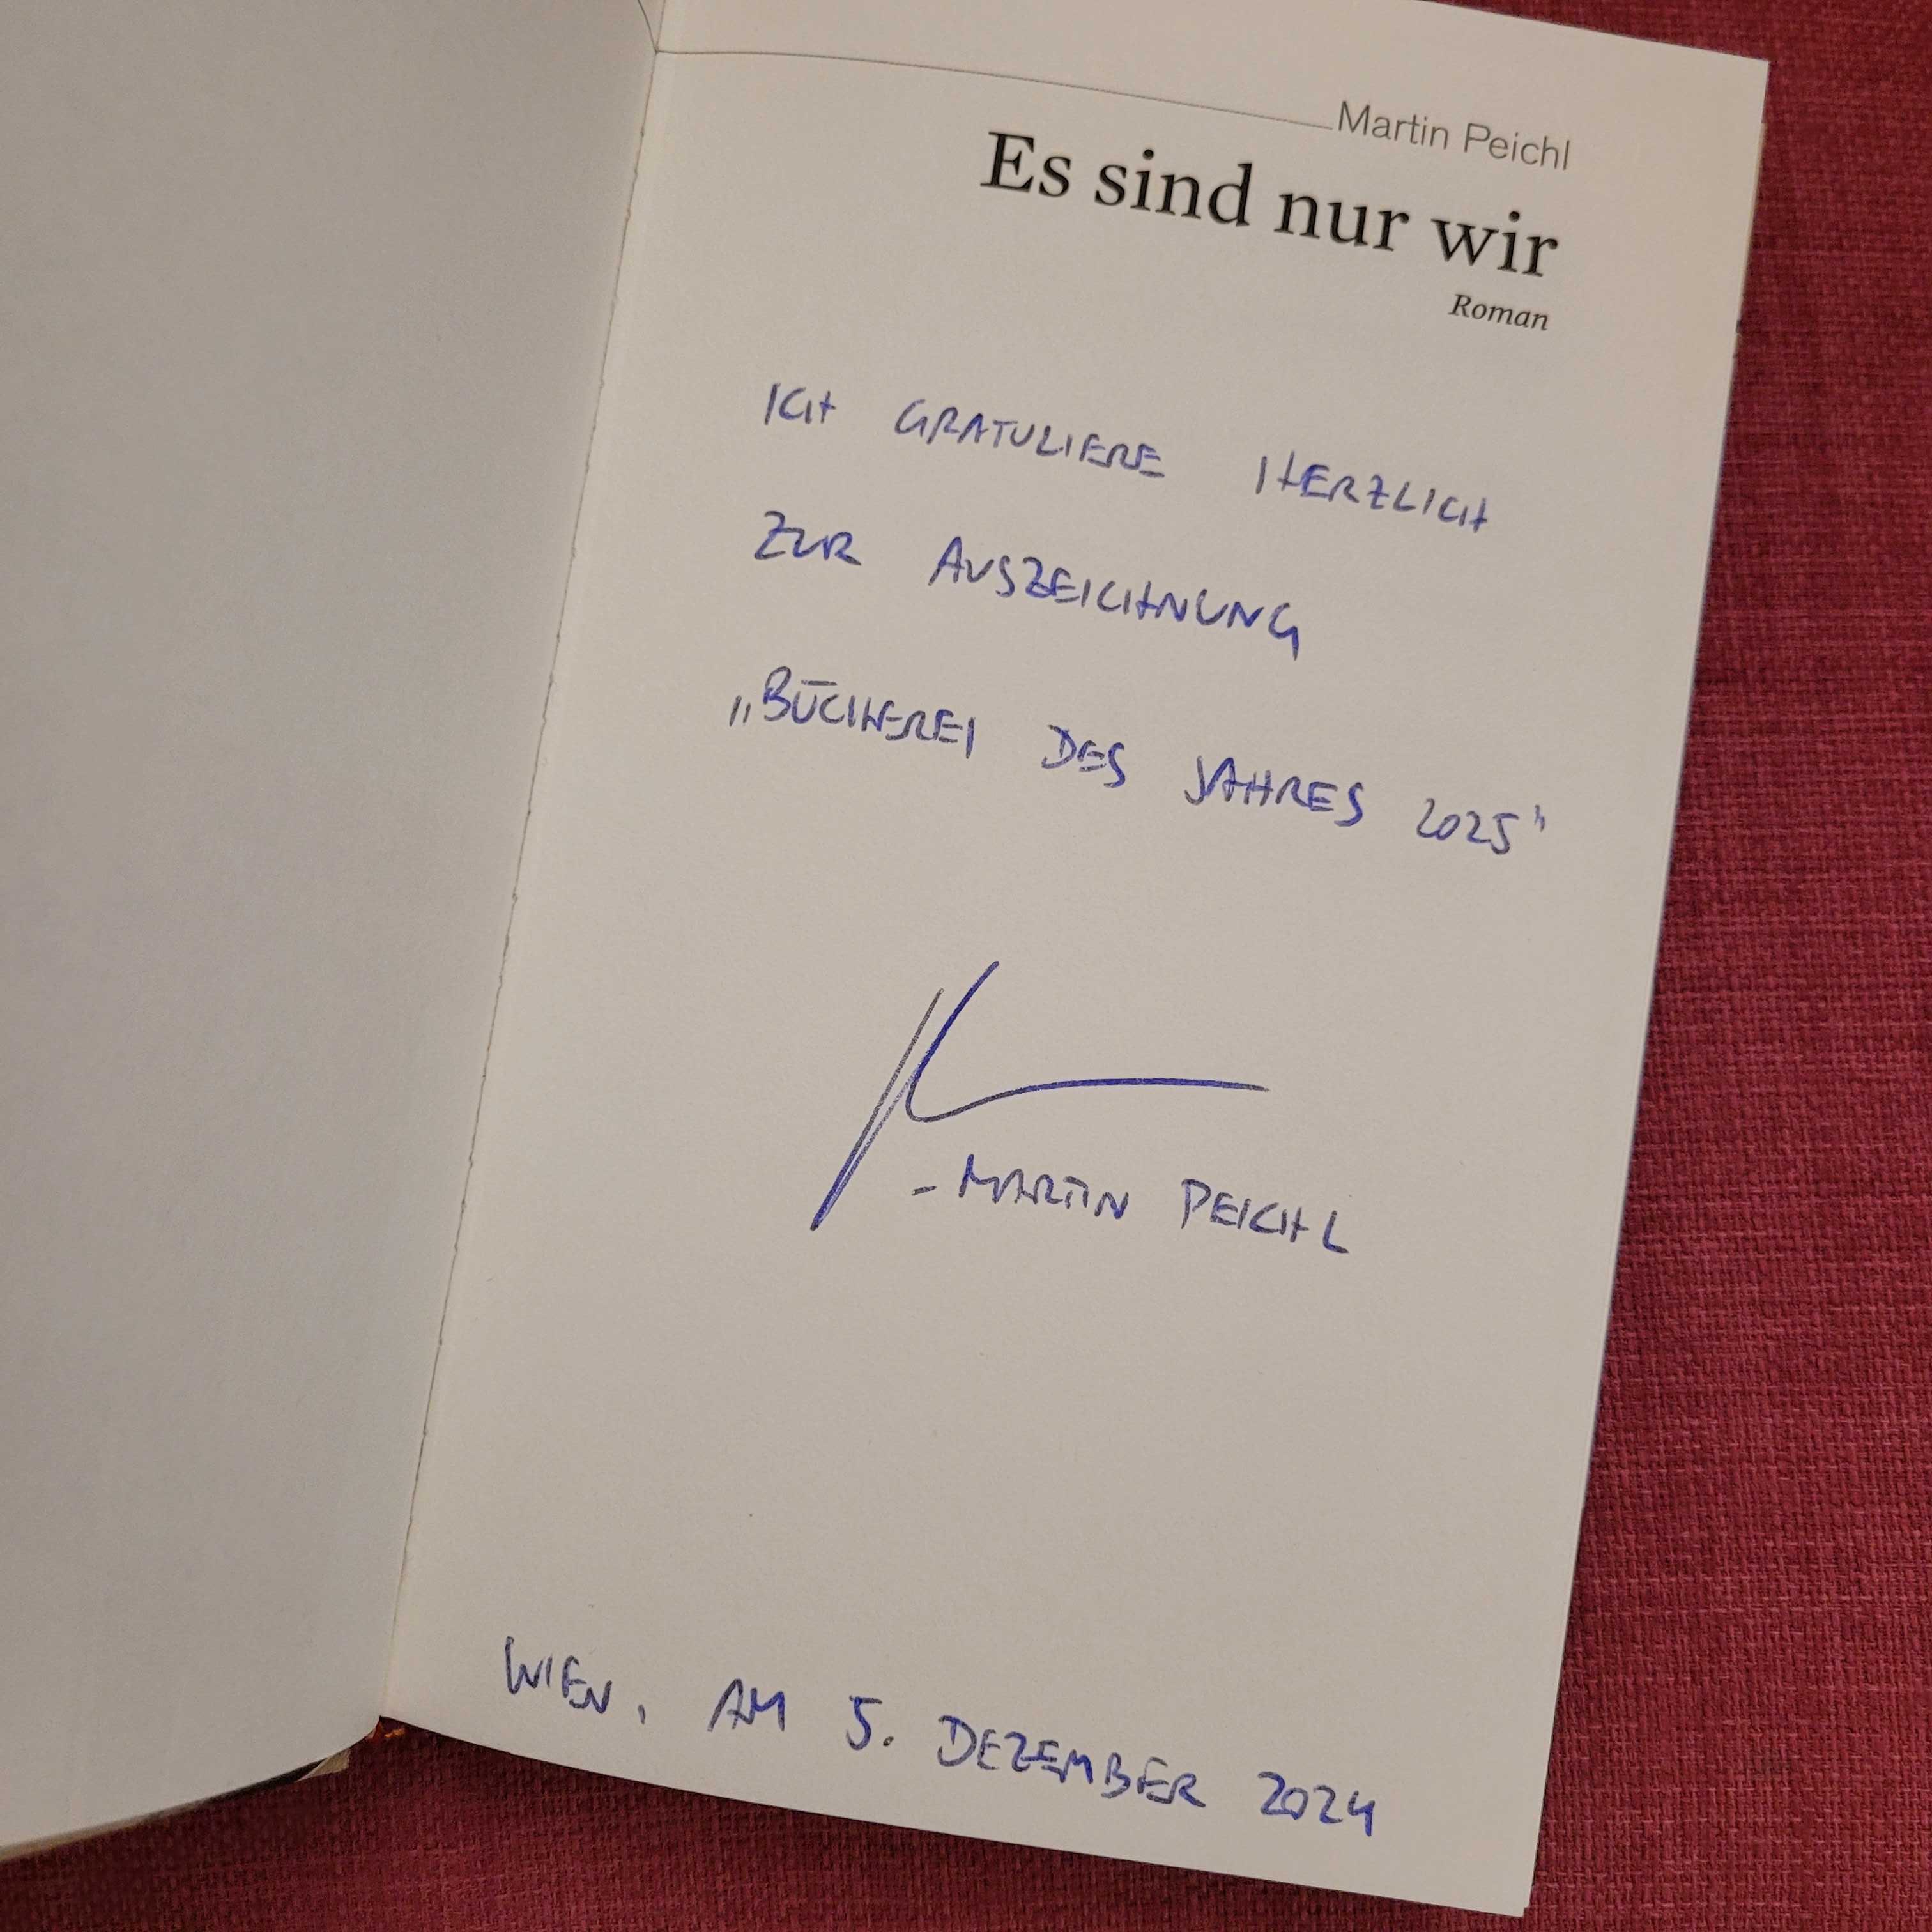 Martin Peichl
Es sind nur wir
Roman
ICH GRATULIERE HERZLICH
ZUR AUSZEICHNUNG
„BÜCHEREI DES JAHRES 2025"
- MARTIN PEICHL
WIEN, AM 5. DEZEMBER 2024